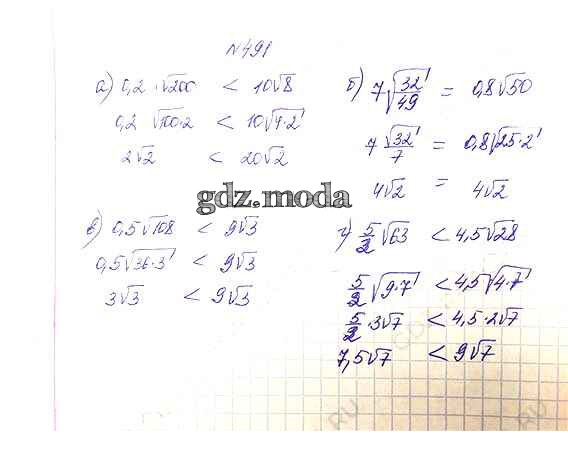 №491
а) 0,2 · √200 < 10√8
0,2 √100·2 < 10√4·2
2√2 < 20√2
б) 7√32/49 = 0,8√50
7 √32/7 = 0,8√25·2
4√2 = 4√2
gdz.moda
в) 0,5√108 < 9√3
0,5√36·3 < 9√3
3√3 < 9√3
г) 5/2 √63 < 4,5√28
5/2 √9·7 < 4,5√4·7
5/2 · 3√7 < 4,5·2√7
7,5√7 < 9√7